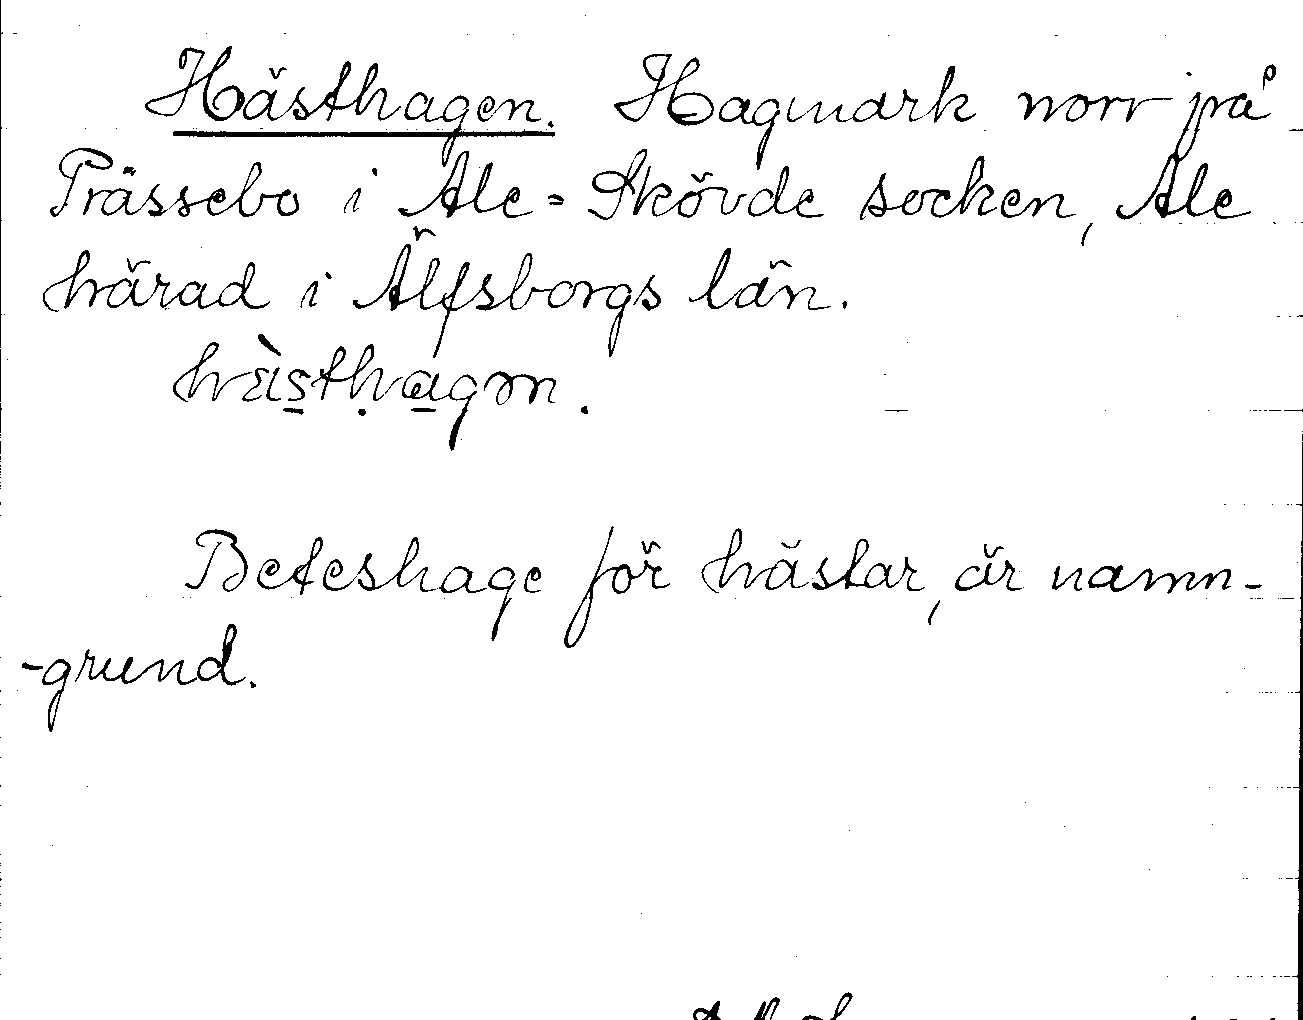 Hästhagen. Hagmark norr på
Prässebo i Ale-Skövde socken, Ale
härad i Älfsborgs län.
hästhagen.
Beteshage för hästar, är namn-
-grund.